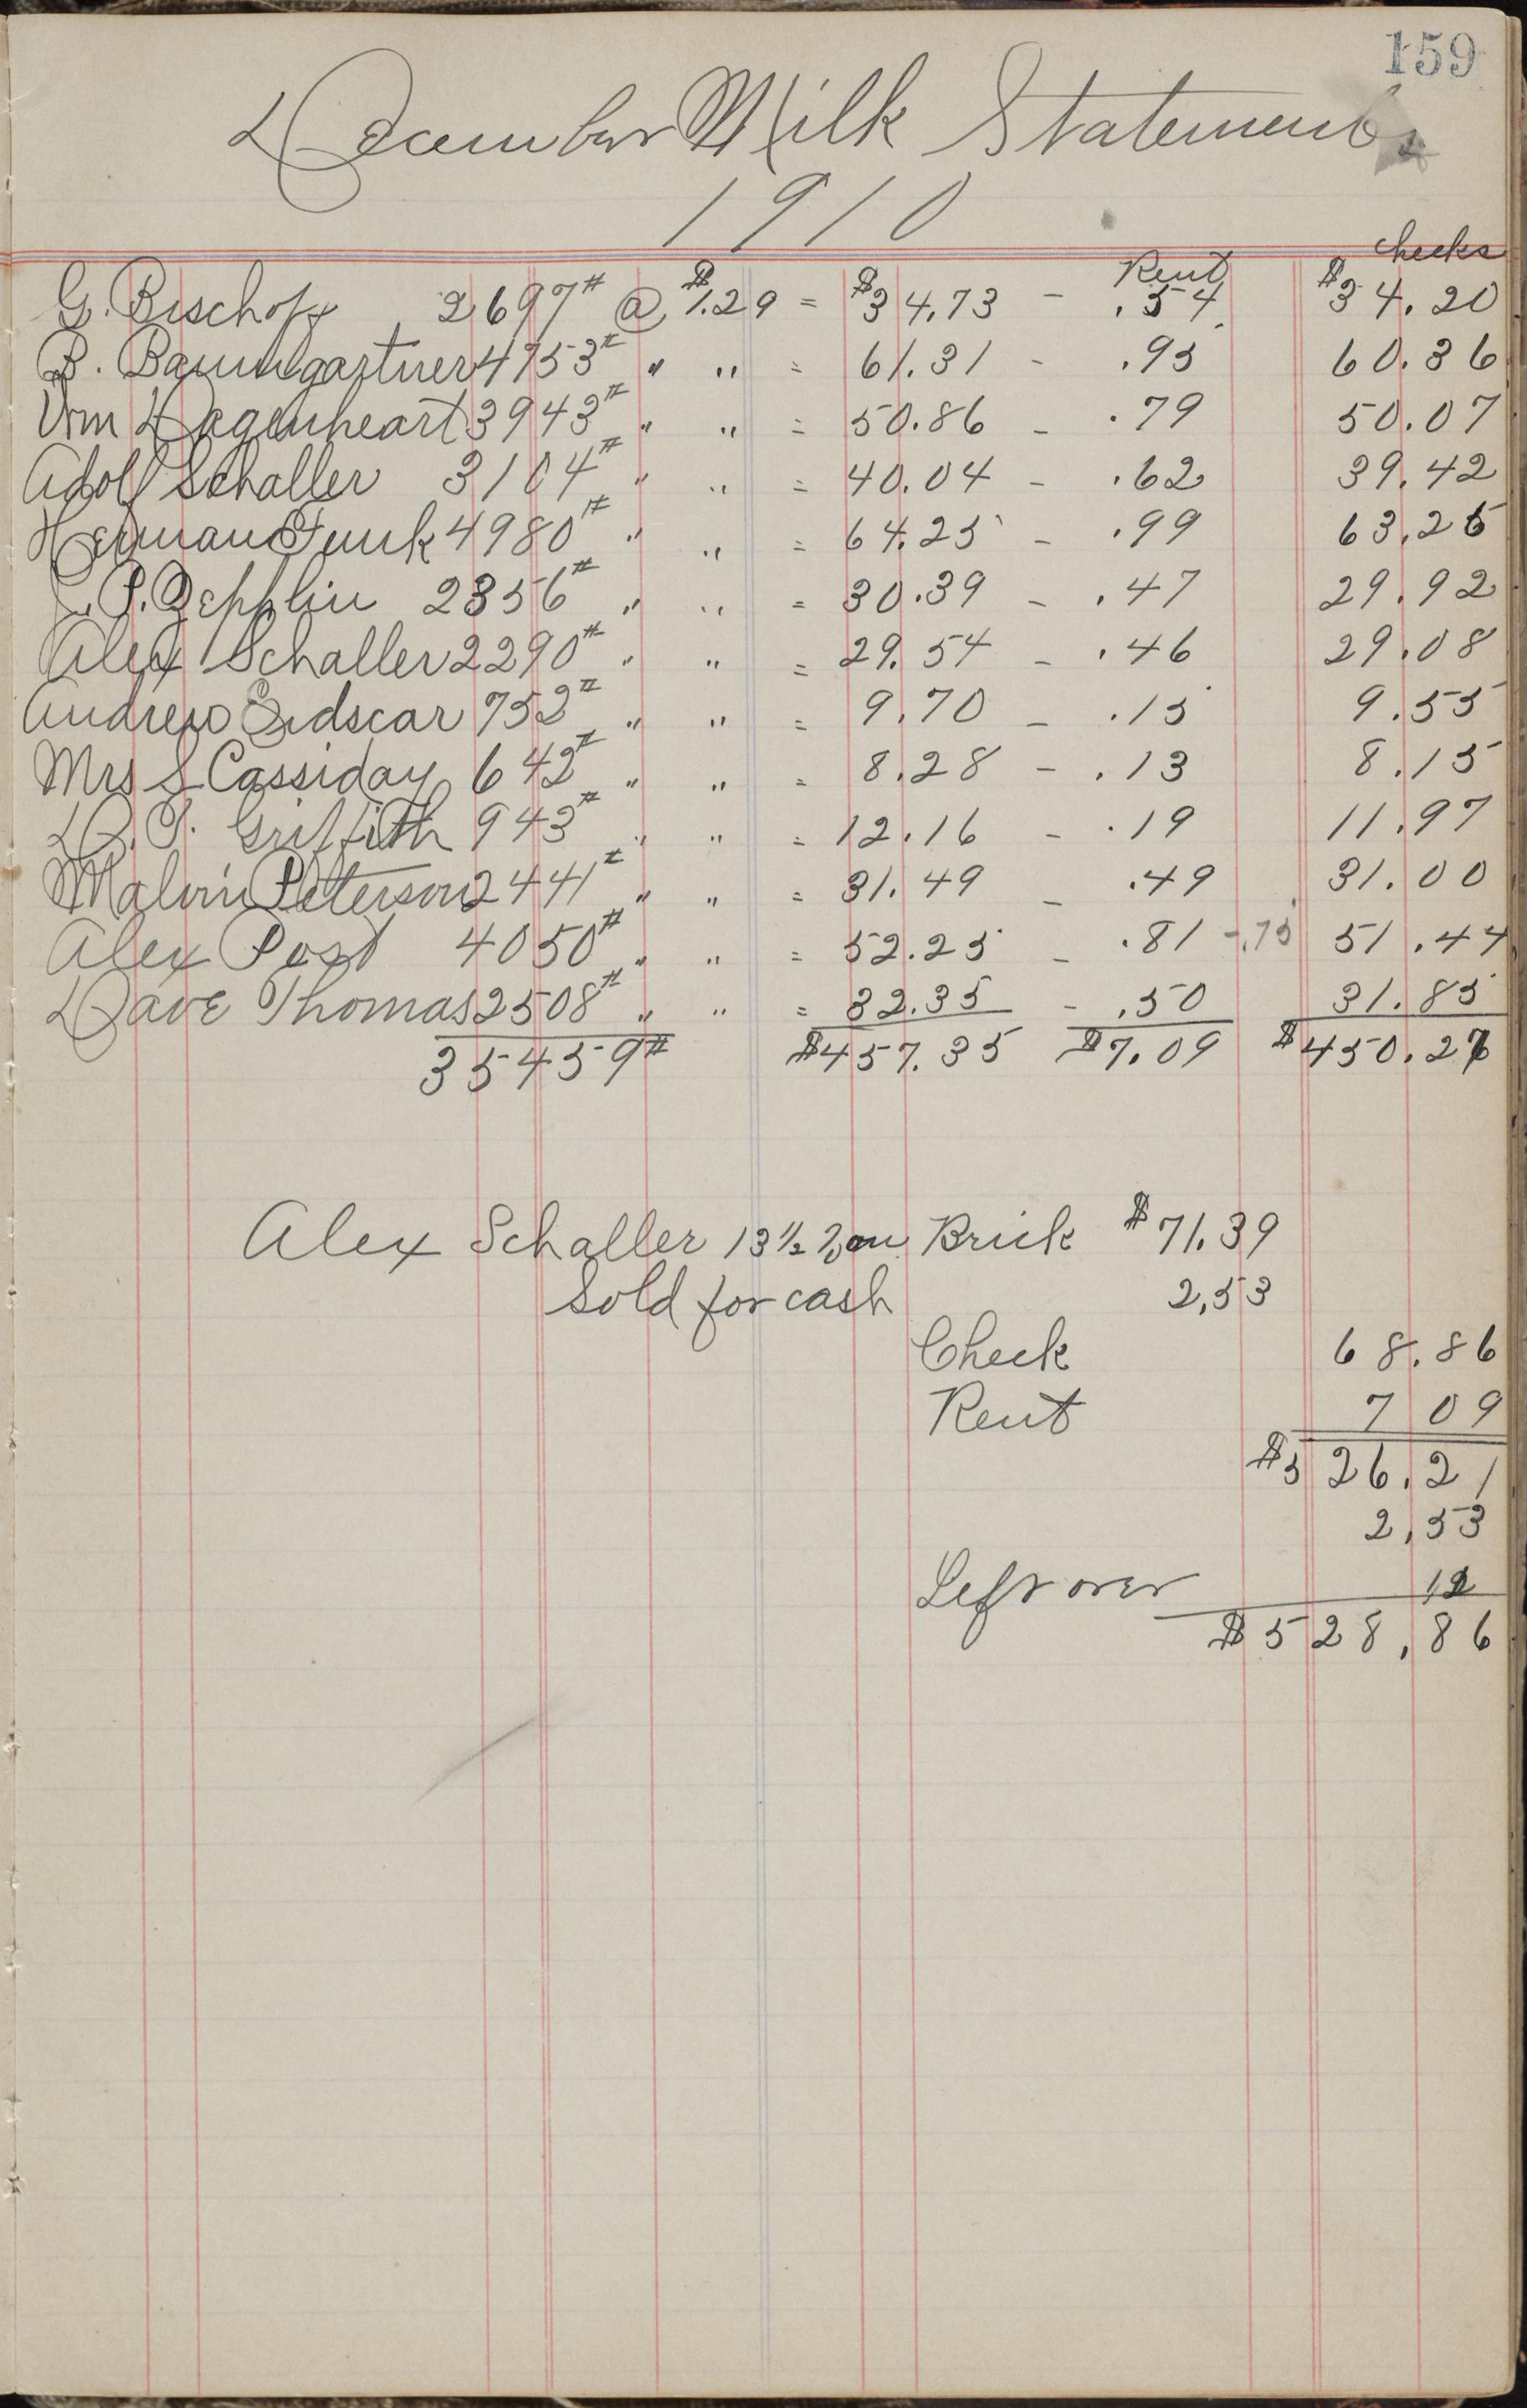 159
December Milk Statement
1910
Rent checks
G. Bischoff 2697# @ $1.29 = $34.73 - .54 $34.20
B. Baumgartner 4753# " " = 61.31 - .95 60.36
Wm Dagenheart 3943# " " = 50.86 - .79 50.07
Adolf Schaller 3104# " " = 40.04 - .62 39.42
Herman Funk 4980# " " = 64.25 - .99 63.26
J. P. Zepplin 2356# " " = 30.39 - .47 29.92
Alex Schaller 2290# " " = 29.54 - .46 29.08
Andrew Eidscar 752# " " = 9.70 - .15 9.55
Mrs S Cassiday 642# " " = 8.28 - .13 8.15
D. J. Griffith 943# " " = 12.16 - .19 11.97
Malvin Peterson 2441# " " = 31.49 - .49 31.00
Alex Post 4050# " " = 52.25 - .81 -.75 51.44
Dave Thomas 2508# " " = 32.35 - .50 31.85
35459# $457.35 $7.09 $450.26
Alex Schaller 13½ % on Brick $71.39
Sold for cash 2.53
Check 68.86
Rent 7 09
$526.21
2.53
Left over 12
$528.86